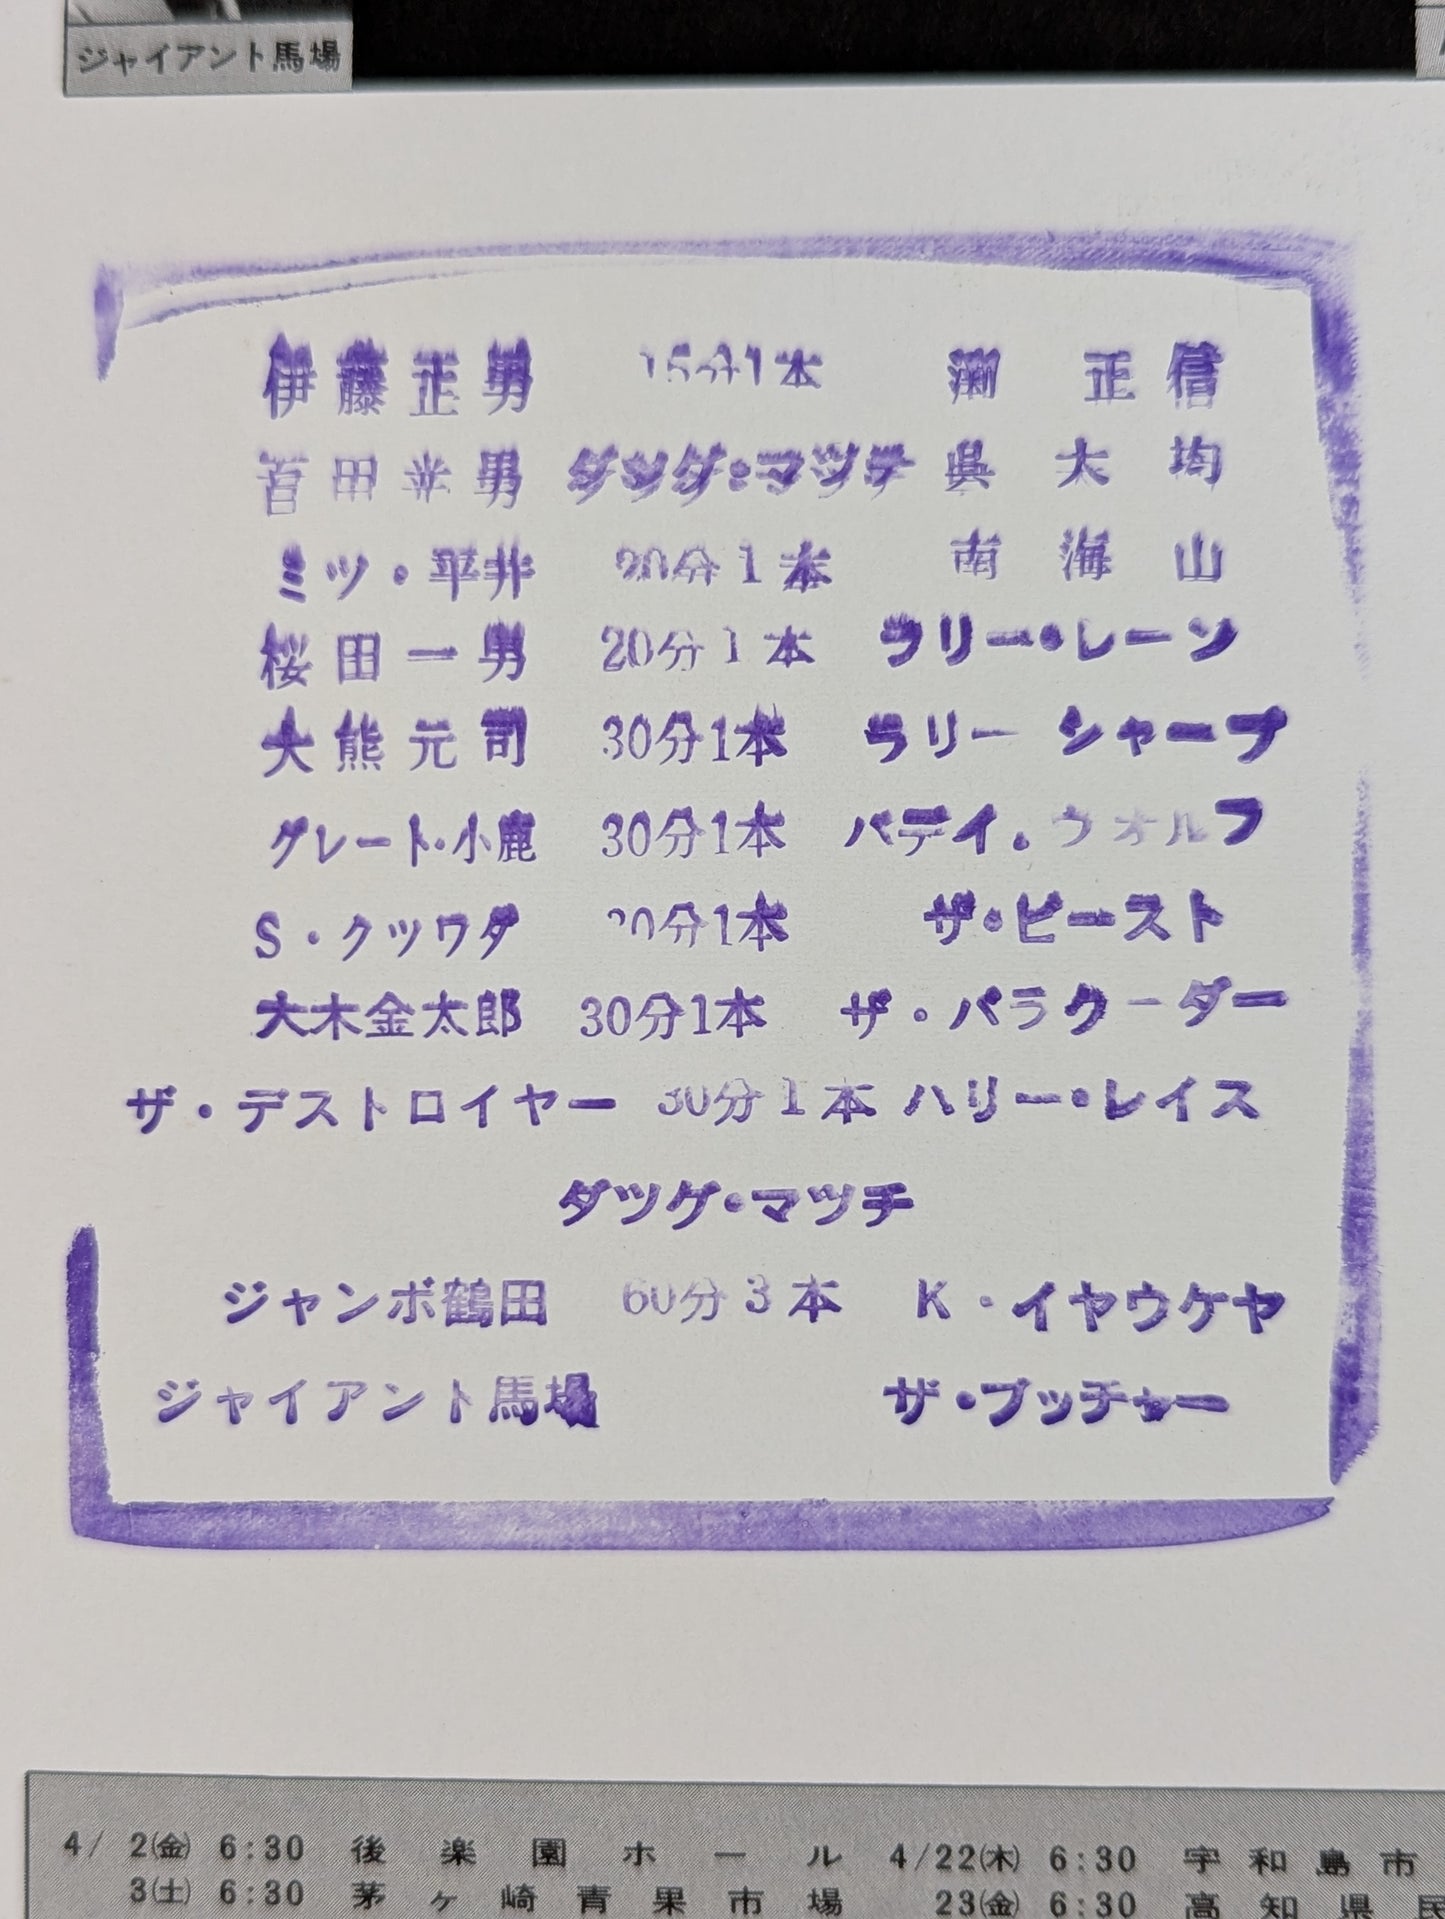 ジャイアント馬場
伊藤正男 15分1本 渕 正信
百田光男 ダツグ・マツチ 呉大均
ミツ・平井 20分1本 南海山
桜田一男 20分1本 ラリー・レーン
大熊元司 30分1本 ラリー シャープ
グレート・小鹿 30分1本 バデイ.ウオルフ
S・クツワダ 30分1本 ザ・ビースト
大木金太郎 30分1本 ザ・バラクーダー
ザ・デストロイヤー 30分1本 ハリー・レイス
ダツグ・マツチ
ジャンボ鶴田 60分3本 K・イヤウケヤ
ジャイアント馬場 ザ・ブッチャー
4/ 2(金) 6:30 後楽園ホール 4/22(木) 6:30 宇和島市
3(土) 6:30 茅ヶ崎青果市場 23(金) 6:30 高知県民